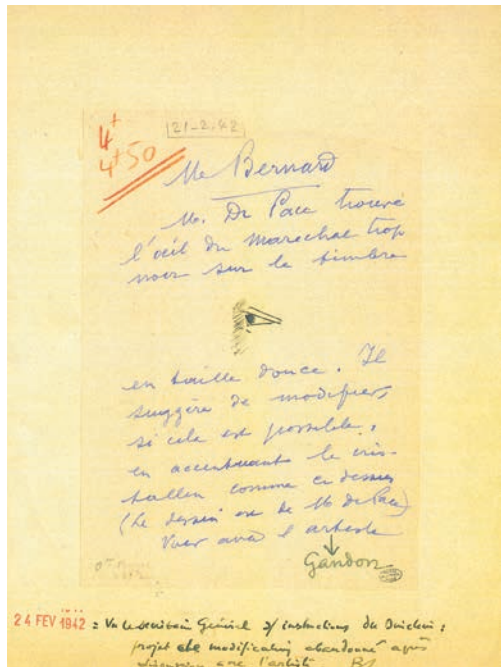 4f
4f50
21-2.42
Mr Bernard
M. Di Pace trouve
l'œil du marechal trop
noir sur le timbre
en taille douce. Il
suggère de modifier,
si cela est possible,
en accentuant le cris-
tallin comme ci dessus
(Le dessin est de M. di Pace)
Voir avec l'artiste
Gandon
24 FEV 1942 : Vu le secrétaire Général instructions du
projet de modification abandonné après
discussion avec l'artiste